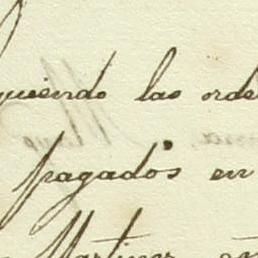 quiendo las orde
pagados en
Martinez